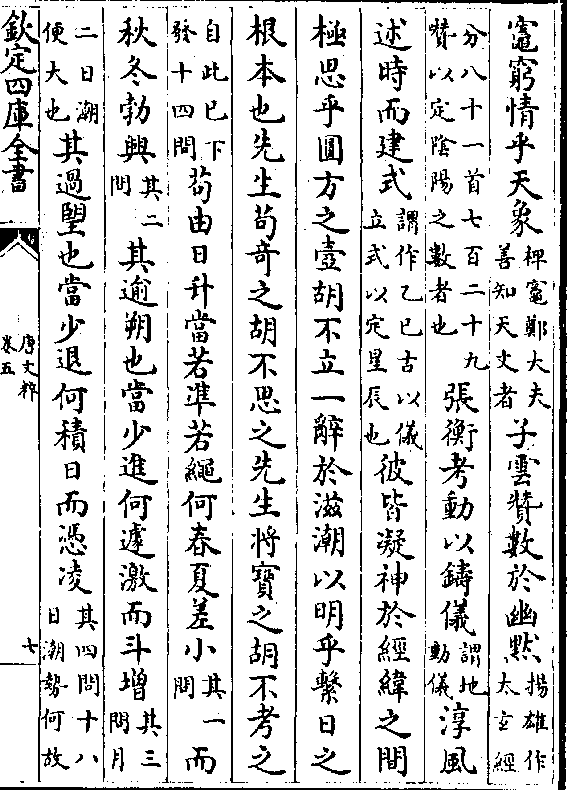 竈窮情乎天象裨竈鄭大夫善知天文者子雲贊數於幽默揚雄作太玄經
分八十一首七百二十九贊以定陰陽之數者也張衡考動以鑄儀謂地動儀淳風
述時而建式謂作乙巳古以儀立式以定星辰也彼皆凝神於經緯之間
極思乎圓方之壺胡不立一辭於滋潮以明乎繫日之
根本也先生苟奇之胡不思之先生將寶之胡不考之
自此已下發十四問苟由日升當若準若繩何春夏差小其一問而
秋冬勃興其二問其逾朔也當少進何遽激而斗增其三問月
二日潮便大也其過朢也當少退何積日而憑凌其四問十八日潮勢何故
欽定四庫全書
唐文粹
卷五
七